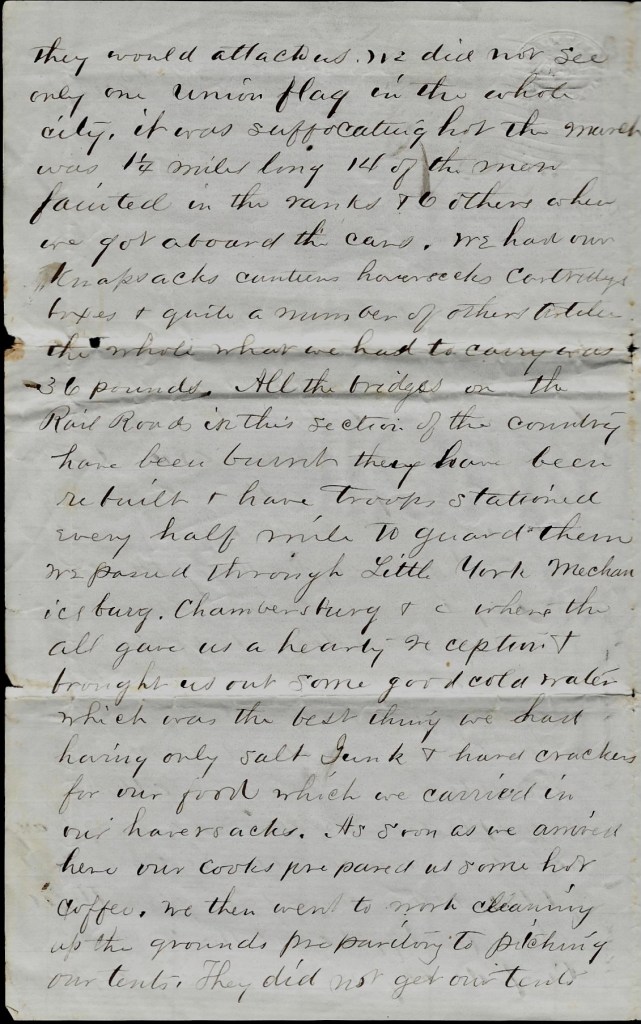 they would attack us. We did not see
only one Union flag in the whole
city. it was suffocating hot the march
was 1¼ miles long 14 of the men
fainted in the ranks & 6 others when
we got aboard the cars. We had our
Knapsacks canteens haversecks Cartridge
boxes & quite a number of others Articles
the whole what we had to carry was
36 pounds. All the bridges on the
Rail Roads in this section of the country
have been burnt they have been
rebuilt & have troops stationed
every half mile to guard them
we passed through Little York Mechan
icsburg. Chambersburg & c where the
all gave us a hearty reception &
brought us out some good cold water
which was the best thing we had
having only salt Junk & hard crackers
for our food which we carried in
our haversacks. As soon as we arrived
here our cooks prepared us some hot
coffee. we then went to work cleaning
up the grounds preparitory to pitching
our tents. They did not get our tents